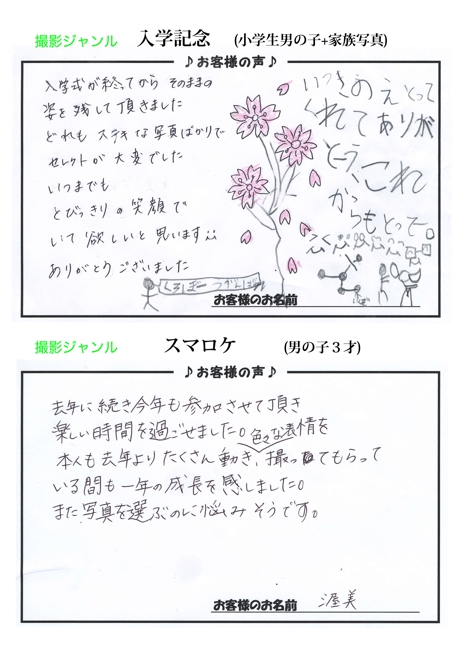 撮影ジャンル 入学記念 (小学生男の子+家族写真)
♪お客様の声♪
入学式が終ってから そのままの
姿を残して頂きました
どれも ステキな写真ばかりで
セレクトが大変でした
いつまでも
とびっきりの笑顔で
いて欲しいと思います
ありがとうございました
いつきのえとって
くれてありが
とう、これ
からも
とって。
お客様のお名前
撮影ジャンル スマロケ (男の子3才)
♪お客様の声♪
去年に続き今年も参加させて頂き
楽しい時間を過ごせました。色々な表情を
本人も去年よりたくさん動き、撮ってもらって
いる間も一年の成長を感じました。
また写真を選ぶのに悩みそうです。
お客様のお名前 渥美